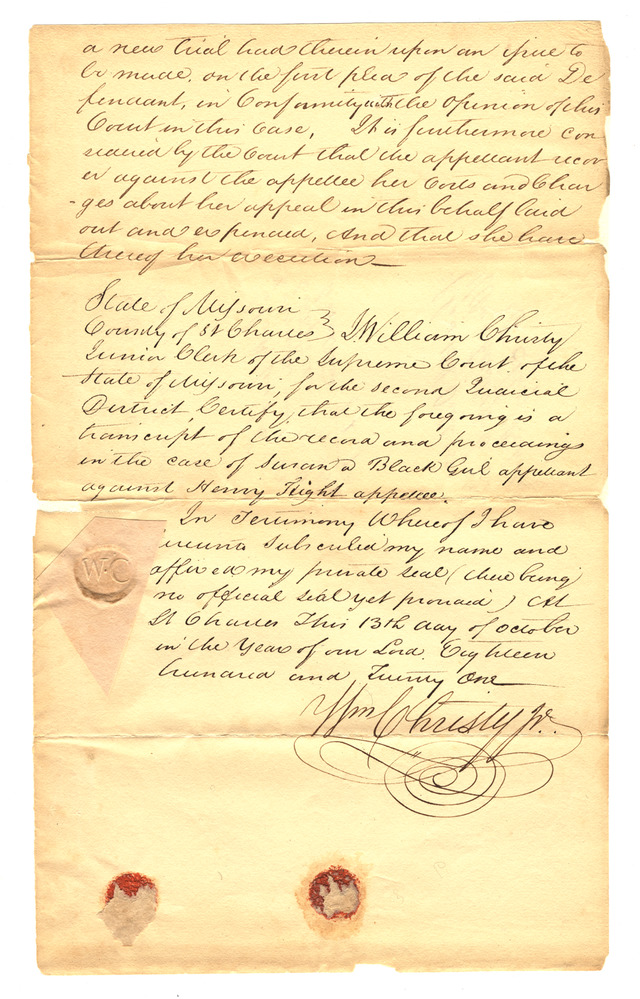 a new trial had therein upon an issue to
be made, on the first plea of the said De
fendant, in Conformity with the Opinion of this
Court in this Case, It is furthermore con
sidered by the Court that the appellant recov
er against the appellee her Costs and Char
-ges about her appeal in this behalf laid
out and expended, And that she have
thereof her execution
State of Missouri
County of St Charles } I William Christy
Junior Clerk of the Supreme Court of the
State of Missouri, for the second Judicial
District Certify that the foregoing is a
transcript of the record and proceedings
in the case of Susan a Black Girl appellant
against Henry Hight appellee.
In Testimony Whereof I have
hereunto Subscribed my name and
affixed my private seal (there being
no official seal yet provided) At
St Charles This 13th day of October
in the Year of our Lord Eighteen
hundred and Twenty One
Wm Christy Jr.
W.C